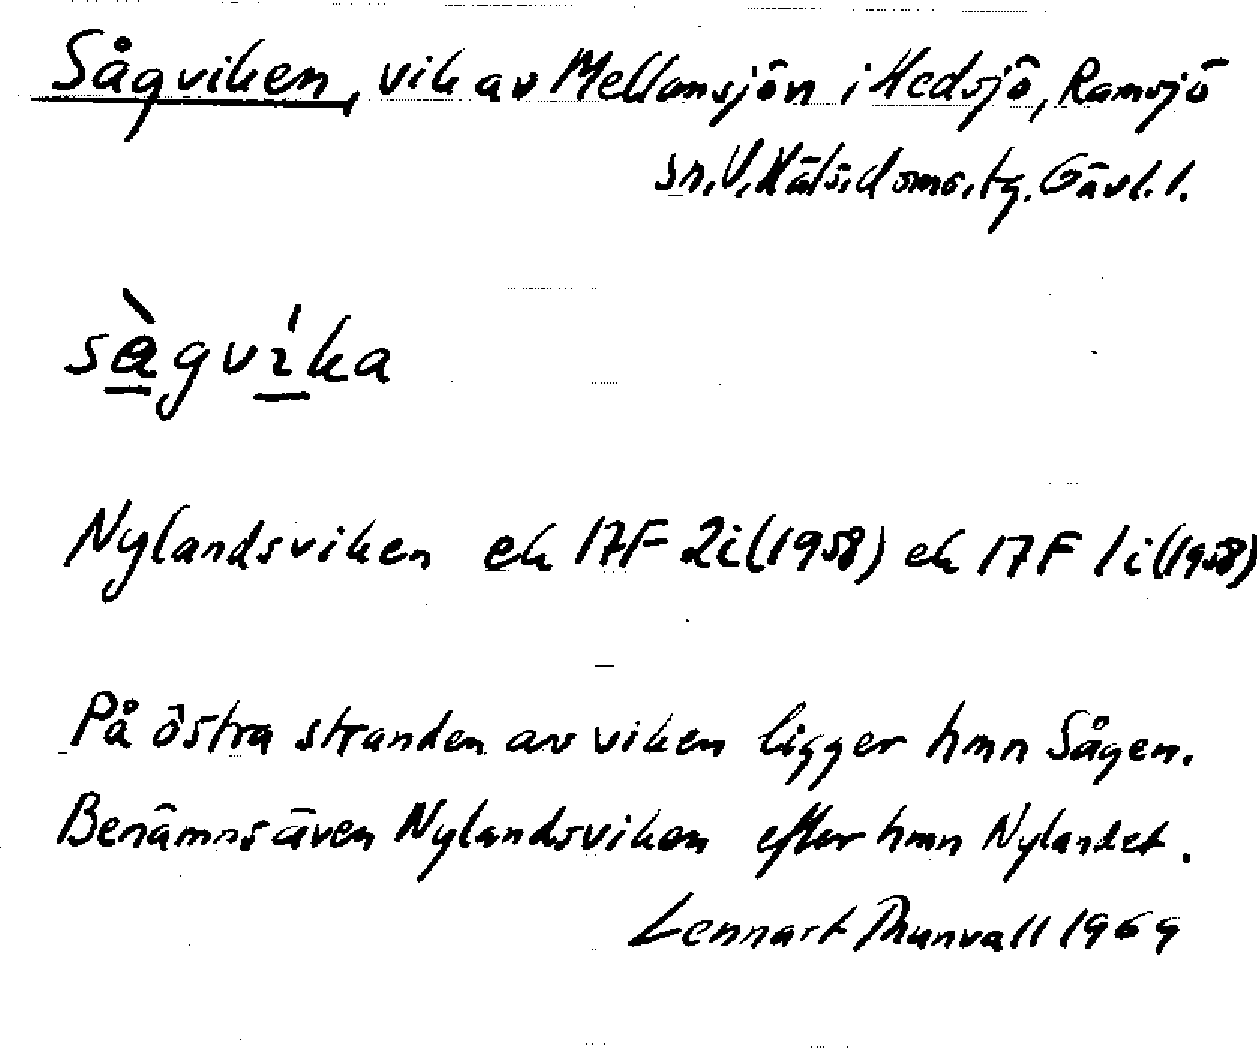 Sågviken, vik av Mellansjön i Hedsjö, Ramsjö
sn. V. Hälsi. doms. tg. Gävl. l.
sàgvíka
Nylandsviken ek 17F 2i (1958) ek 17F 1i (1958)
På östra stranden av viken ligger hmn Sågen.
Benämns även Nylandsviken efter hmn Nylandet.
Lennart Thunvall 1969